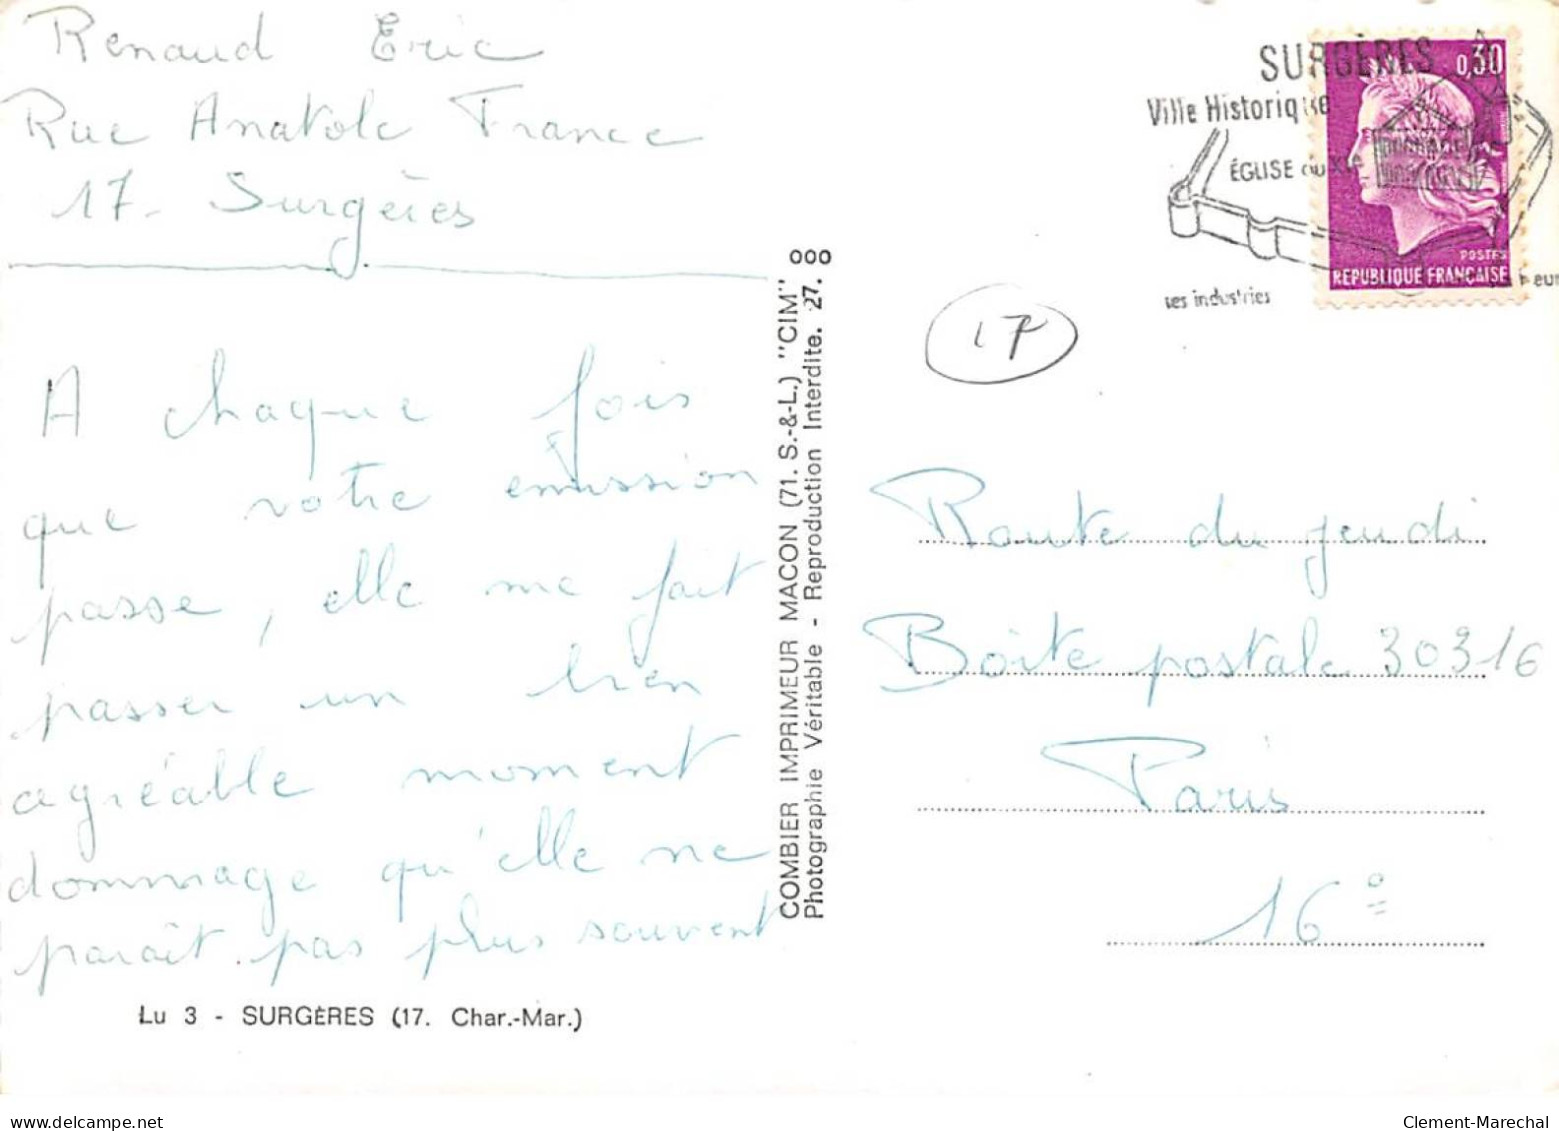 Renaud Eric
Rue Anatole France
17. Surgères
A chaque fois
que votre emission
passe, elle me fait
passer un bien
agréable moment
dommage qu'elle ne
paraît. pas plus souvent
Lu 3 - SURGÈRES (17. Char.-Mar.)
COMBIER IMPRIMEUR MACON (71. S.-&-L.) "CIM"
Photographie Véritable - Reproduction Interdite. 27.
SURGÈRES
Ville Historique
ÉGLISE du
ses industries
0,30
POSTES
REPUBLIQUE FRANÇAISE
17
Route du jeudi
Boîte postale 30316
Paris
16º
delcampe.net
Clement-Marechal